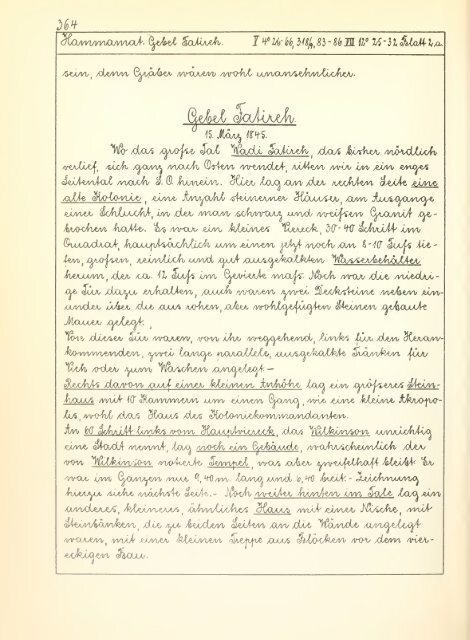 364
Hammamat. Gebel Fatireh. V 4° 26-66, 318/9, 83-86 VII 12° 25-32 Blatt 2, a.
sein, denn Gräber wären wohl unansehnlicher.
Gebel Fatireh.
15. März 1845.
Wo das große Tal Wadi Fatireh, das bisher nördlich
verlief, sich ganz nach Osten wendet, ritten wir in ein enges
Seitental nach S.O. hinein. Hier lag an der rechten Seite eine
alte Kolonie, eine Anzahl steinerner Häuser, am Ausgange
einer Schlucht, in der man schwarz und weißen Granit ge-
brochen hatte. Es war ein kleines Viereck, 30-40 Schritt im
Quadrat, hauptsächlich um einen jetzt noch an 8-10 Fuß tie-
fen, großen, reinlich und gut ausgekalkten Wasserbehälter
herum, der ca. 12 Fuß im Gevierte maß. Noch war die niedri-
ge Tür dazu erhalten, auch waren zwei Decksteine neben ein-
ander über die aus rohen, aber wohlgefügten Steinen gebaute
Mauer gelegt.
Von dieser Tür waren, von ihr weggehend, links für den Heran-
kommenden, zwei lange parallele, ausgekalkte Tränken für
Vieh oder zum Waschen angelegt.-
Rechts davon auf einer kleinen Anhöhe lag ein größeres Stein-
haus mit 10 Kammern um einen Gang, wie eine kleine Akropo-
lis, wohl das Haus des Koloniekommandanten.
An 60 Schritt links vom Hauptviereck, das Wilkinson unrichtig
eine Stadt nennt, lag noch ein Gebäude, wahrscheinlich der
von Wilkinson notierte Tempel, was aber zweifelhaft bleibt. Er
war im Ganzen nur 9,40 m. lang und 6,40 breit.- Zeichnung
hierzu siehe nächste Seite.- Noch weiter hinten im Tale lag ein
anderes, kleineres, ähnliches Haus mit einer Nische, mit
Steinbänken, die zu beiden Seiten an die Wände angelegt
waren, mit einer kleinen Treppe aus Blöcken vor dem vier-
eckigen Bau.